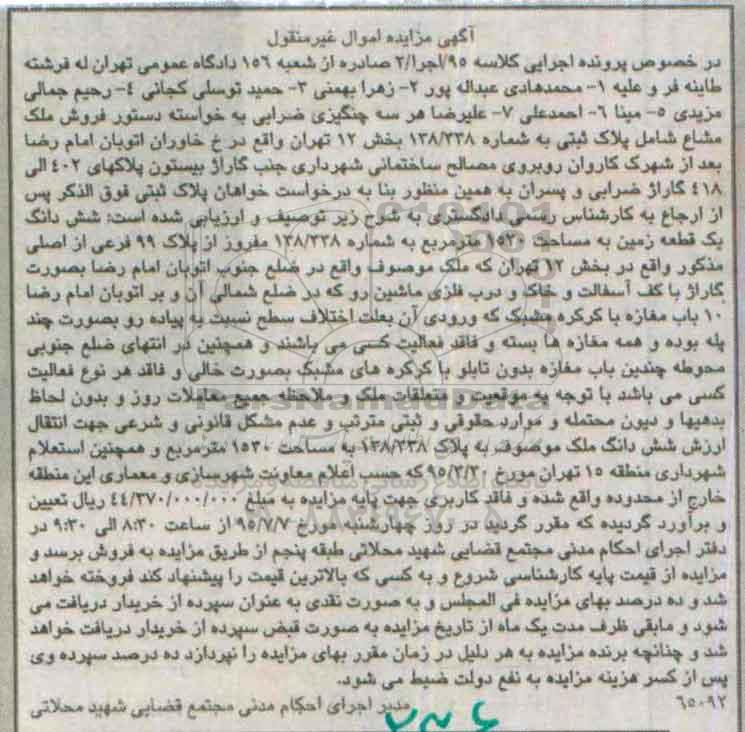 آگهی مزایده اموال غیرمنقول
در خصوص پرونده اجرایی کلاسه ۹۵/اجرا/۲ صادره از شعبه ۱۵۶ دادگاه عمومی تهران له فرشته
طاینه فر و علیه ۱- محمدهادی عبداله پور ۲- زهرا بهمنی ۳- حمید توسلی کجانی ۴- رحیم جمالی
مزیدی ۵- مینا ۶- احمدعلی ۷- علیرضا هر سه چنگیزی ضرابی به خواسته دستور فروش ملک
مشاع شامل پلاک ثبتی به شماره ۱۳۸/۳۳۸ بخش ۱۲ تهران واقع در خ خاوران اتوبان امام رضا
بعد از شهرک کاروان روبروی مصالح ساختمانی شهرداری جنب گاراژ بیستون پلاکهای ۴۰۲ الی
۴۱۸ گاراژ ضرابی و پسران به همین منظور بنا به درخواست خواهان پلاک ثبتی فوق الذکر پس
از ارجاع به کارشناس رسمی دادگستری به شرح زیر توصیف و ارزیابی شده است: شش دانگ
یک قطعه زمین به مساحت ۱۵۳۰ مترمربع به شماره ۱۳۸/۳۳۸ مفروز از پلاک ۹۹ فرعی از اصلی
مذکور واقع در بخش ۱۲ تهران که ملک موصوف واقع در ضلع جنوب اتوبان امام رضا بصورت
گاراژ با کف آسفالت و خاک و درب فلزی ماشین رو که در ضلع شمالی آن و بر اتوبان امام رضا
۱۰ باب مغازه با کرکره مشبک که ورودی آن بعلت اختلاف سطح نسبت به پیاده رو بصورت چند
پله بوده و همه مغازه ها بسته و فاقد فعالیت کسی می باشند و همچنین در انتهای ضلع جنوبی
محوطه چندین باب مغازه بدون تابلو با کرکره های مشبک بصورت خالی و فاقد هر نوع فعالیت
کسی می باشد با توجه به موقعیت و متعلقات ملک و ملاحظه جمیع معاملات روز و بدون لحاظ
بدهیها و دیون محتمله و موارد حقوقی و ثبتی مترتب و عدم مشکل قانونی و شرعی جهت انتقال
ارزش شش دانگ ملک موصوف به پلاک ۱۳۸/۳۳۸ به مساحت ۱۵۳۰ مترمربع و همچنین استعلام
شهرداری منطقه ۱۵ تهران مورخ ۹۵/۳/۳۰ که حسب اعلام معاونت شهرسازی و معماری این منطقه
خارج از محدوده واقع شده و فاقد کاربری جهت پایه مزایده به مبلغ ۴۴/۳۷۰/۰۰۰/۰۰۰ ریال تعیین
و برآورد گردیده که مقرر گردید در روز چهارشنبه مورخ ۹۵/۷/۷ از ساعت ۸:۳۰ الی ۹:۳۰ در
دفتر اجرای احکام مدنی مجتمع قضایی شهید محلاتی طبقه پنجم از طریق مزایده به فروش برسد و
مزایده از قیمت پایه کارشناسی شروع و به کسی که بالاترین قیمت را پیشنهاد کند فروخته خواهد
شد و ده درصد بهای مزایده فی المجلس و به صورت نقدی به عنوان سپرده از خریدار دریافت می
شود و مابقی ظرف مدت یک ماه از تاریخ مزایده به صورت قبض سپرده از خریدار دریافت خواهد
شد و چنانچه برنده مزایده به هر دلیل در زمان مقرر بهای مزایده را نپردازد ده درصد سپرده وی
پس از کسر هزینه مزایده به نفع دولت ضبط می شود.
۶۵۰۹۲ مدیر اجرای احکام مدنی مجتمع قضایی شهید محلاتی
ParsNamadData